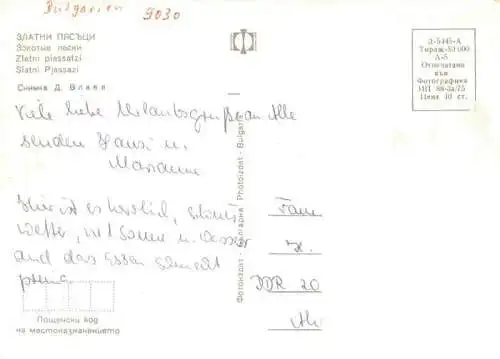 Bulgarien 9030
ЗЛАТНИ ПЯСЪЦИ
Золотые пески
Zlatni piassatzi
Slatni Pjassazi
Снимка Д. Влаев
Д-5445-А
Тираж-51 000
А-5
Отпечатана
във
Фотографика
ИП 88-за/75
Цена 10 ст.
Viele liebe Urlaubsgrüße an Alle
senden Hansi u.
Marianne
Hier ist es herrlich,
Wetter, mit Sonne u. Wasser
und das Essen schmeckt
prima.
Фотоиздат - България Photoizdat - Bulgaria
Fam
H.
DDR 20
Пощенски код
на местоназначението